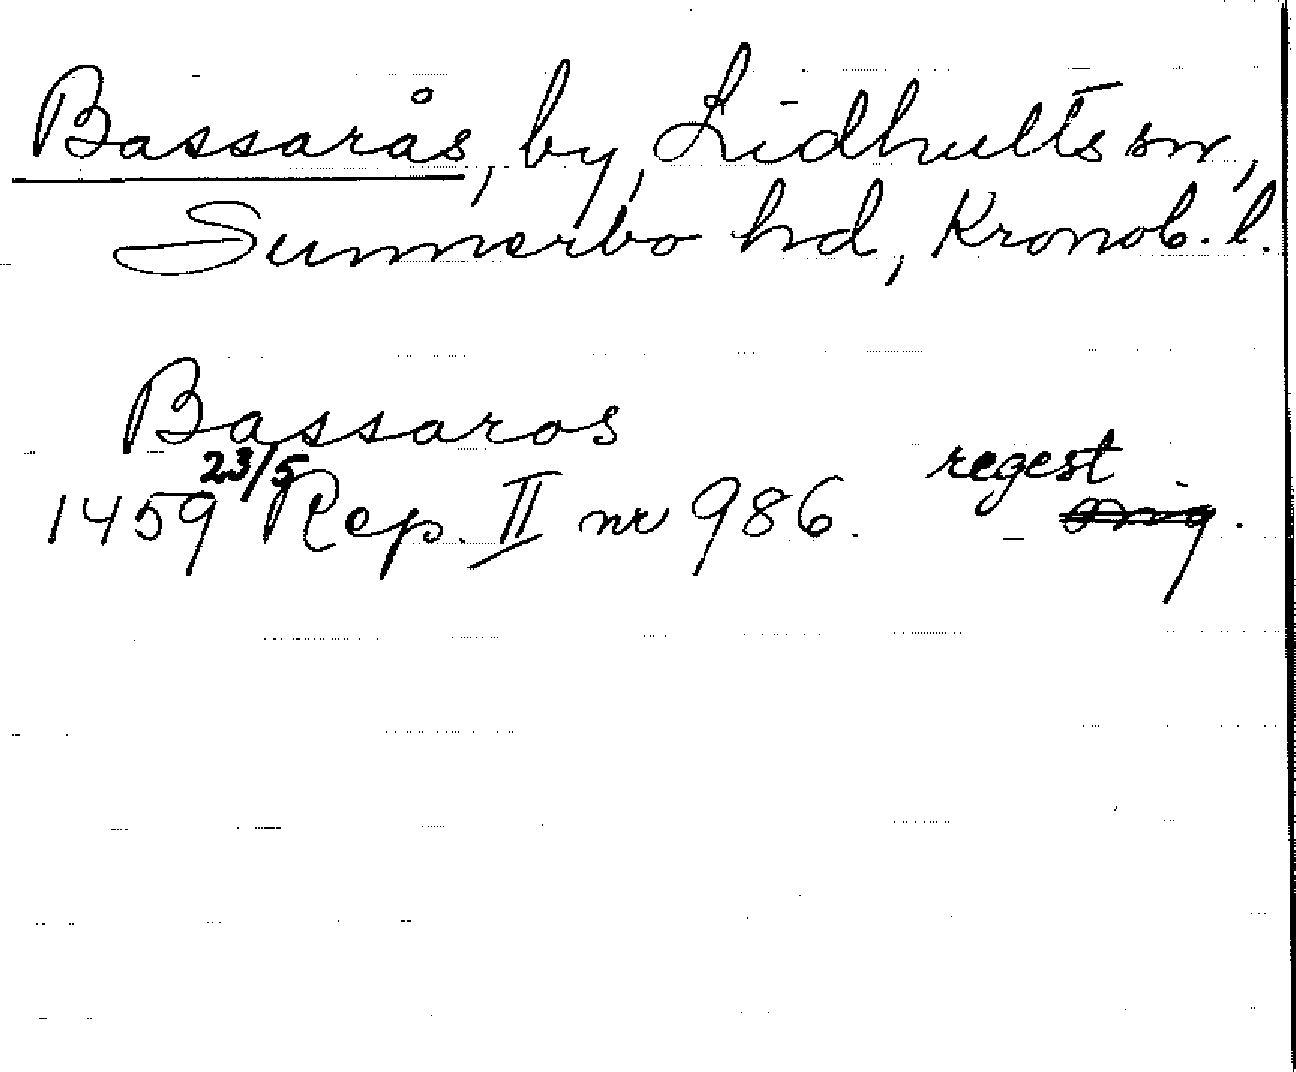 Bassarås, by, Lidhults sn,
Sunnerbo hd, Kronob. l.
Bassaros
1459 23/5 Rep. II nr 986. regest